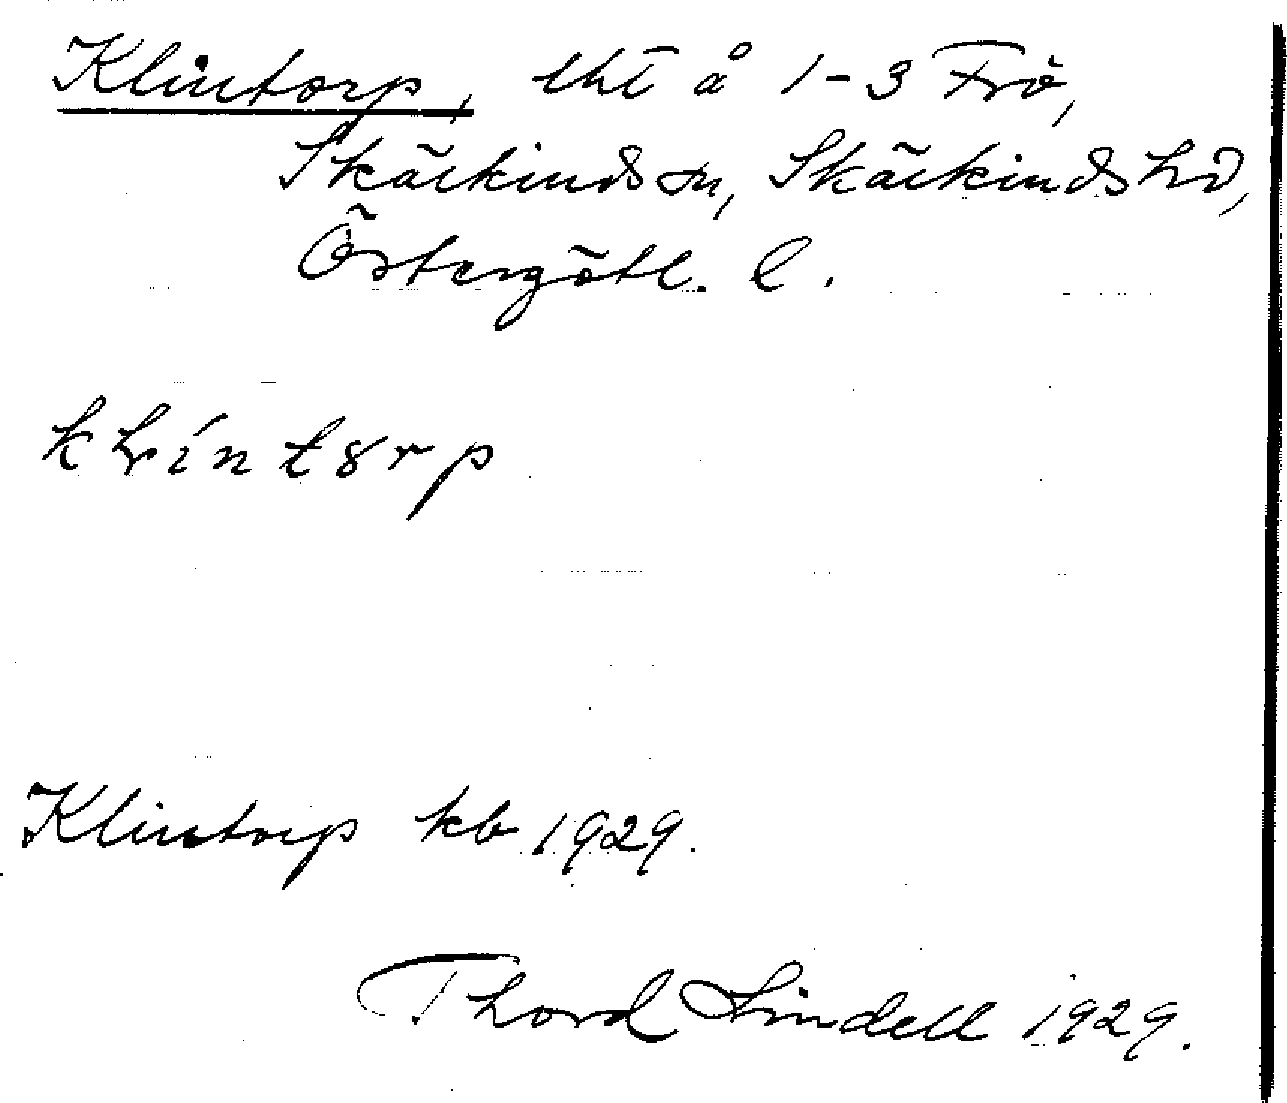 Klintorp, lht å 1-3 Frö,
Skärkinds sn, Skärkinds hd,
Östergötl. l.
klintorp
Klintorp kb 1929.
Thord Lindell 1929.